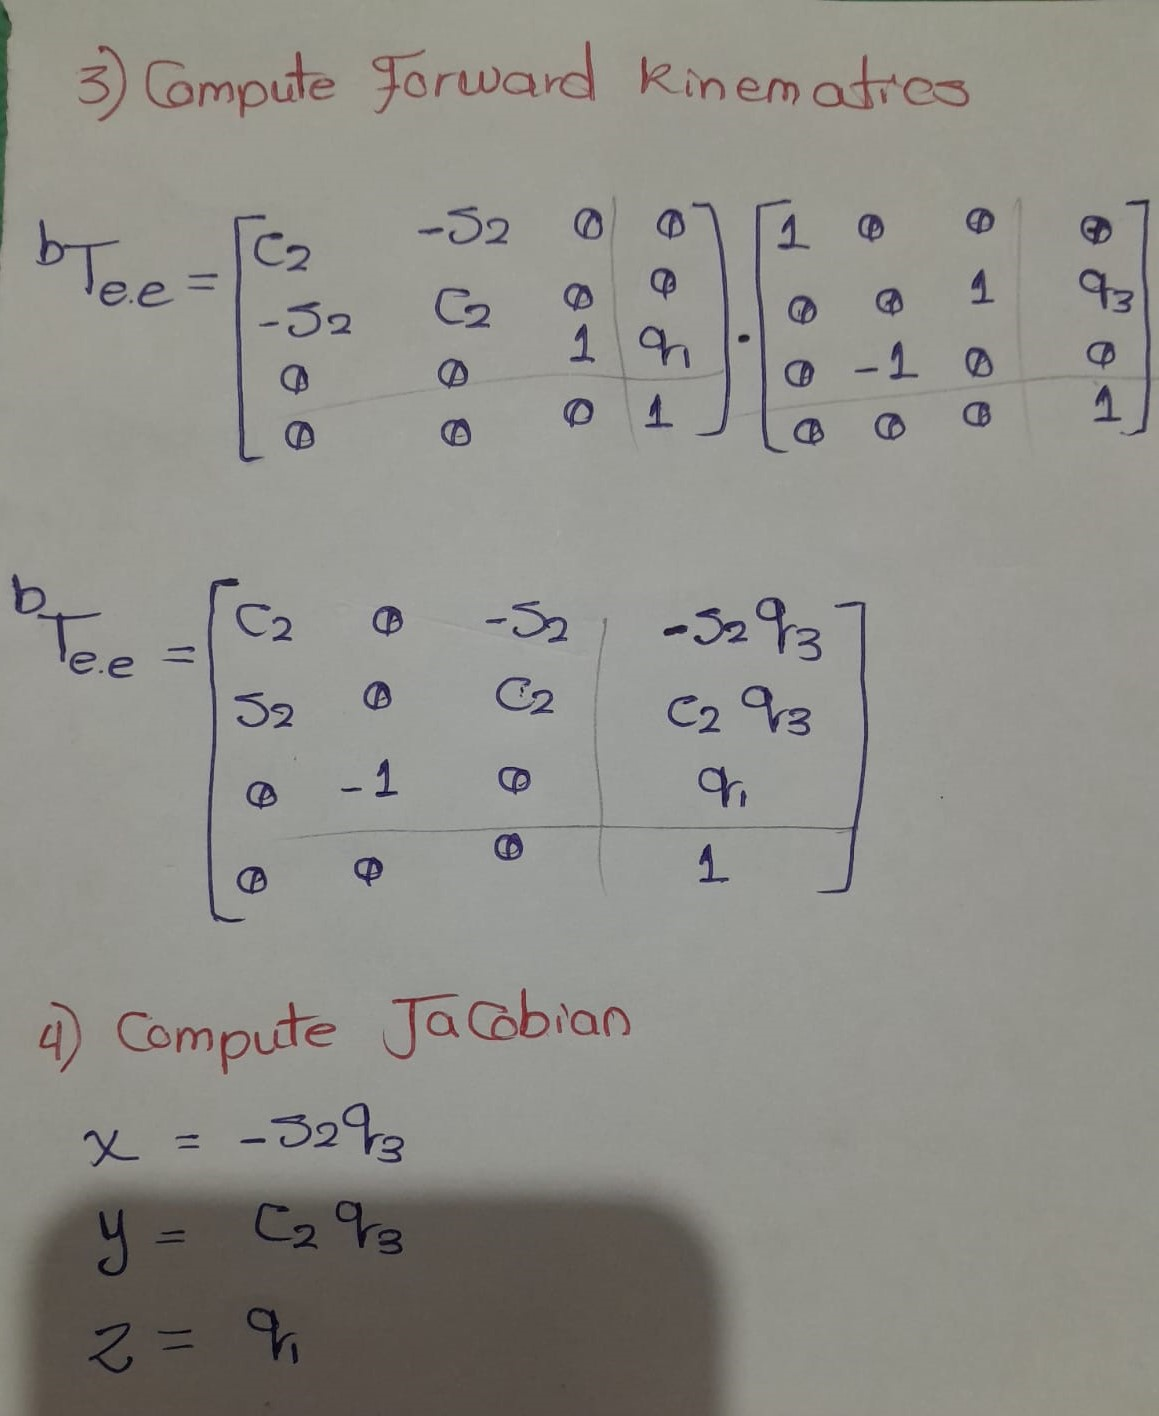 3) Compute Forward Kinematics
bTe.e = [C2 -S2 0 0] . [1 0 0 0]
[-S2 C2 0 0] [0 0 1 q3]
[0 0 1 q1] [0 -1 0 0]
[0 0 0 1] [0 0 0 1]
bTe.e = [C2 0 -S2 -S2q3]
[S2 0 C2 C2 q3]
[0 -1 0 q1]
[0 0 0 1]
4) Compute Jacobian
x = -S2q3
y = C2 q3
z = q1